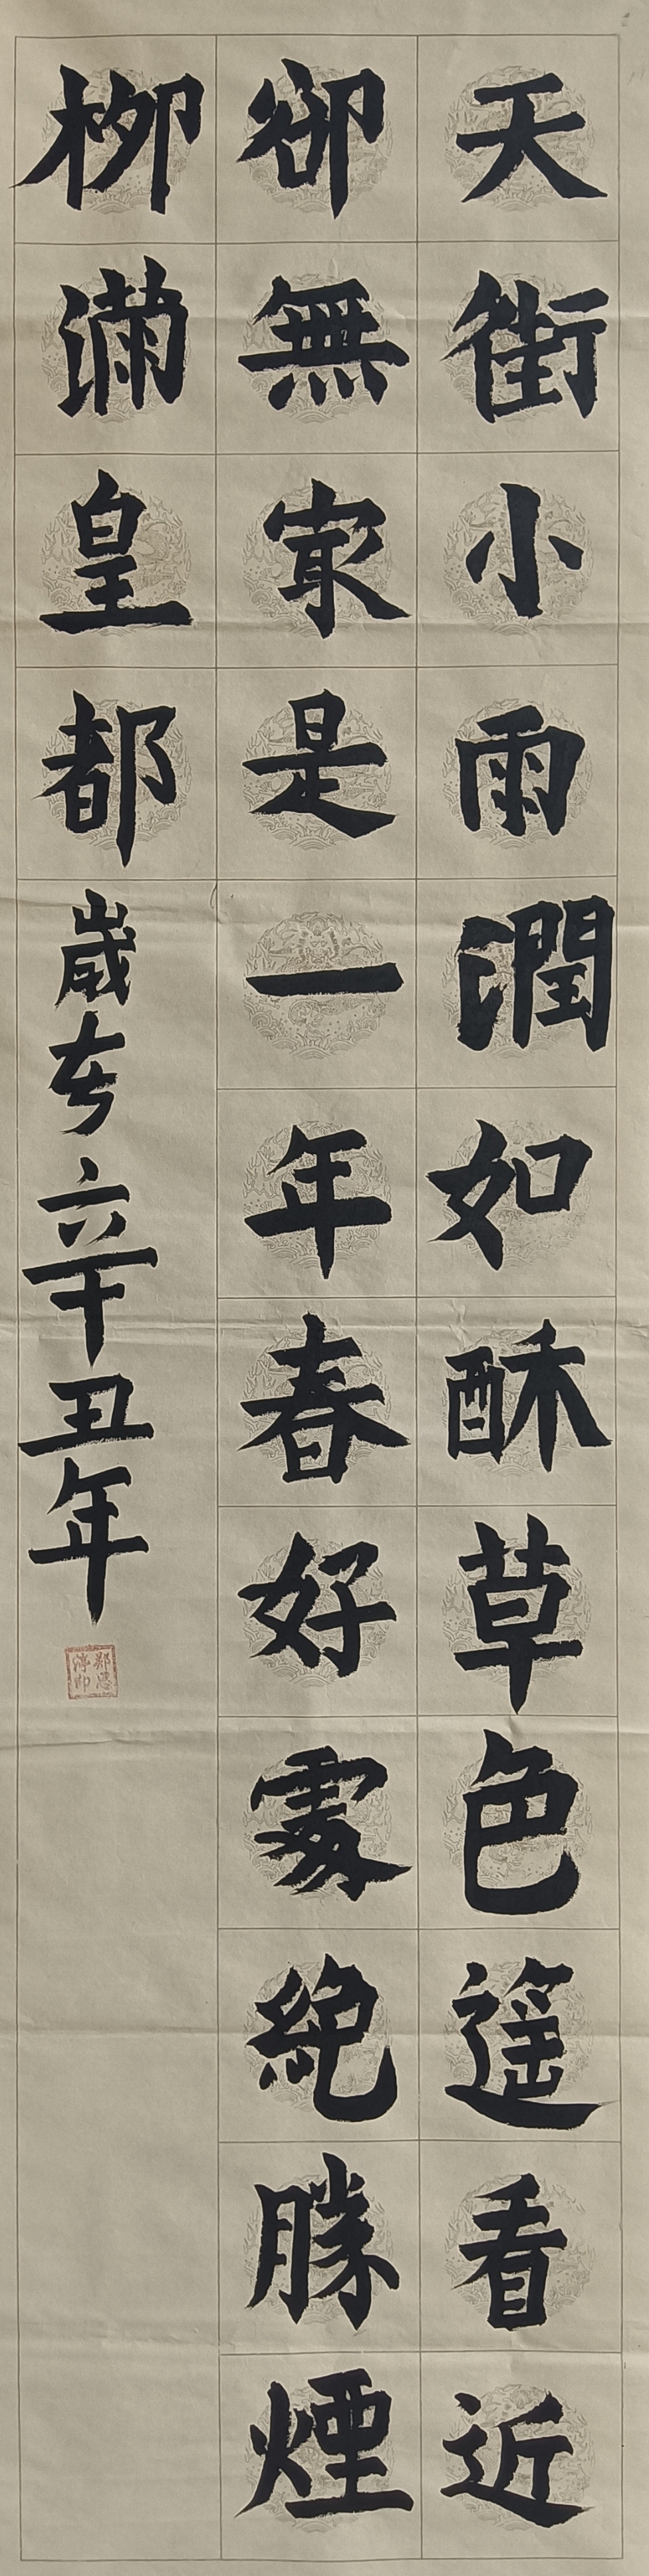 天街小雨潤如酥草色遥看近
卻無冣是一年春好處絕勝煙
柳滿皇都
歲在辛丑年